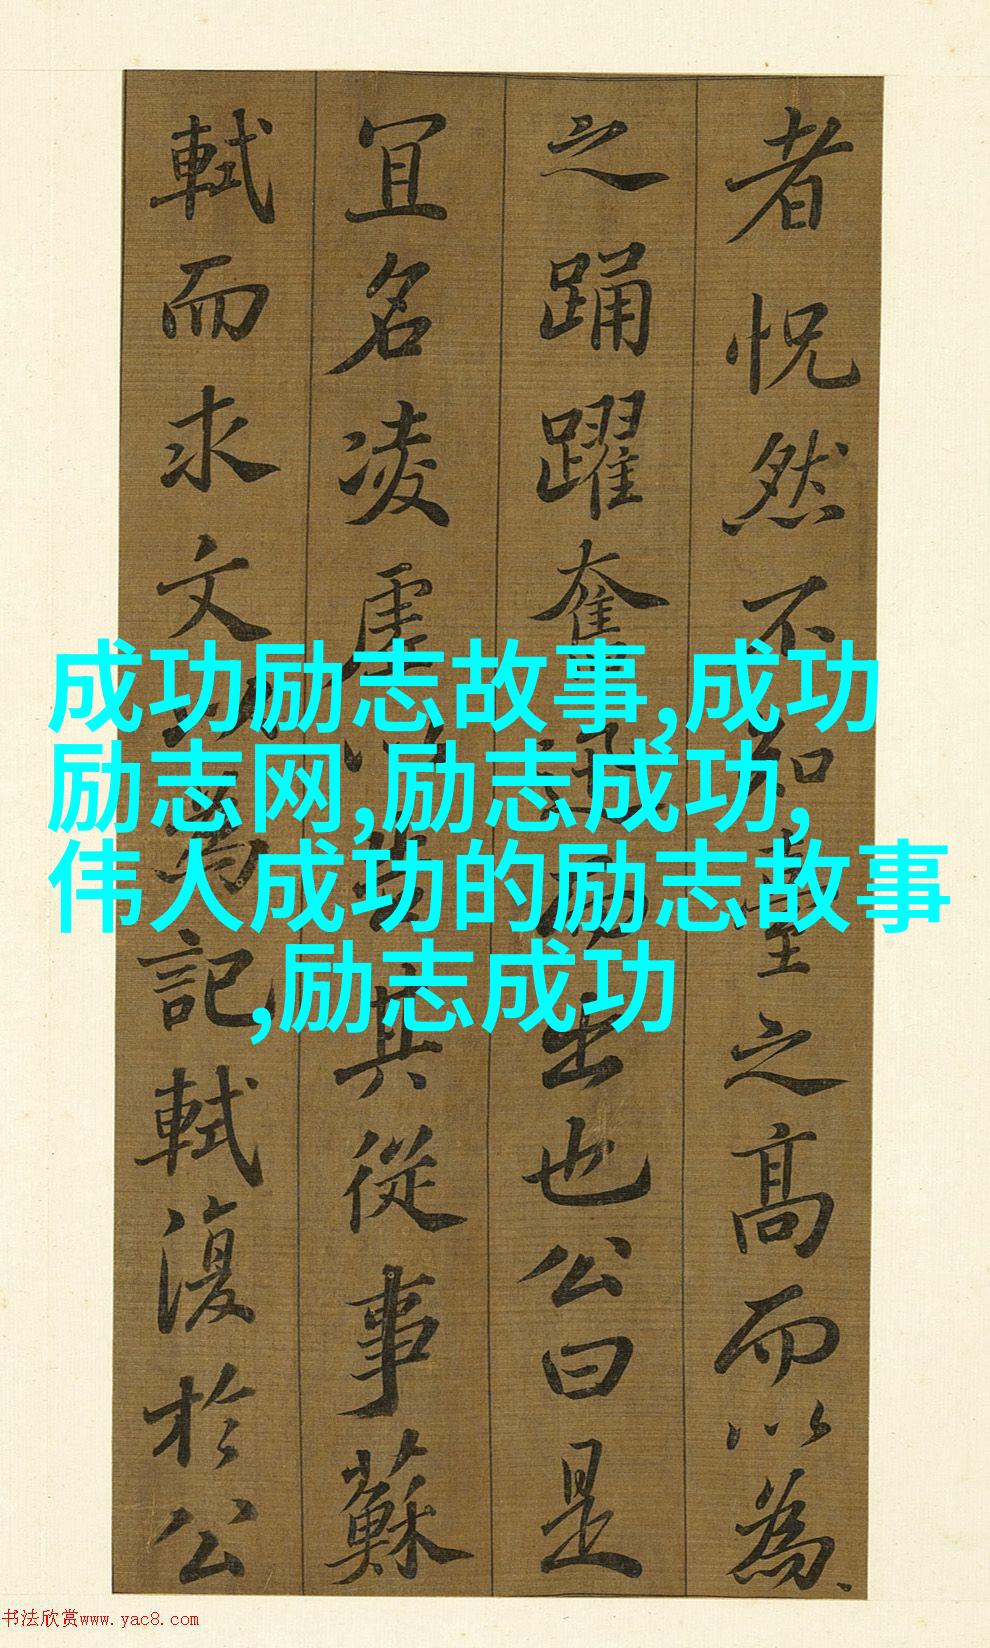 者怳然不知臺之高而以為
之踊躍奮迅而出也公曰是
宜名凌虛以告其從事蘇
軾而求文以為記軾復於公
成功励志故事,成功
励志网,励志成功,
伟人成功的励志故事
,励志成功
书法欣赏www.yac8.com